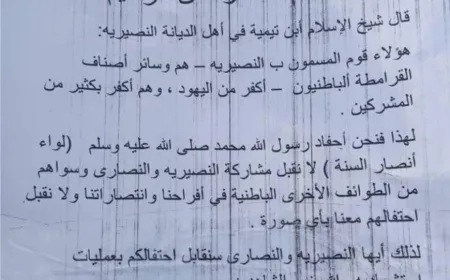 قال شيخ الإسلام ابن تيمية في أهل الديانة النصيريه:
هؤلاء قوم المسمون ب النصيريه – هم وسائر أصناف
القرامطة الباطنيون – أكفر من اليهود ، وهم أكفر بكثير من
المشركين .
لهذا فنحن أحفاد رسول الله محمد صلى الله عليه وسلم (لواء
أنصار السنة ) لا نقبل مشاركة النصيريه والنصارى وسواهم
من الطوائف الأخرى الباطنية في أفراحنا وانتصاراتنا ولا نقبل
احتفالهم معنا بأي صورة .
لذلك أيها النصيريه والنصارى سنقابل احتفالكم بعمليات